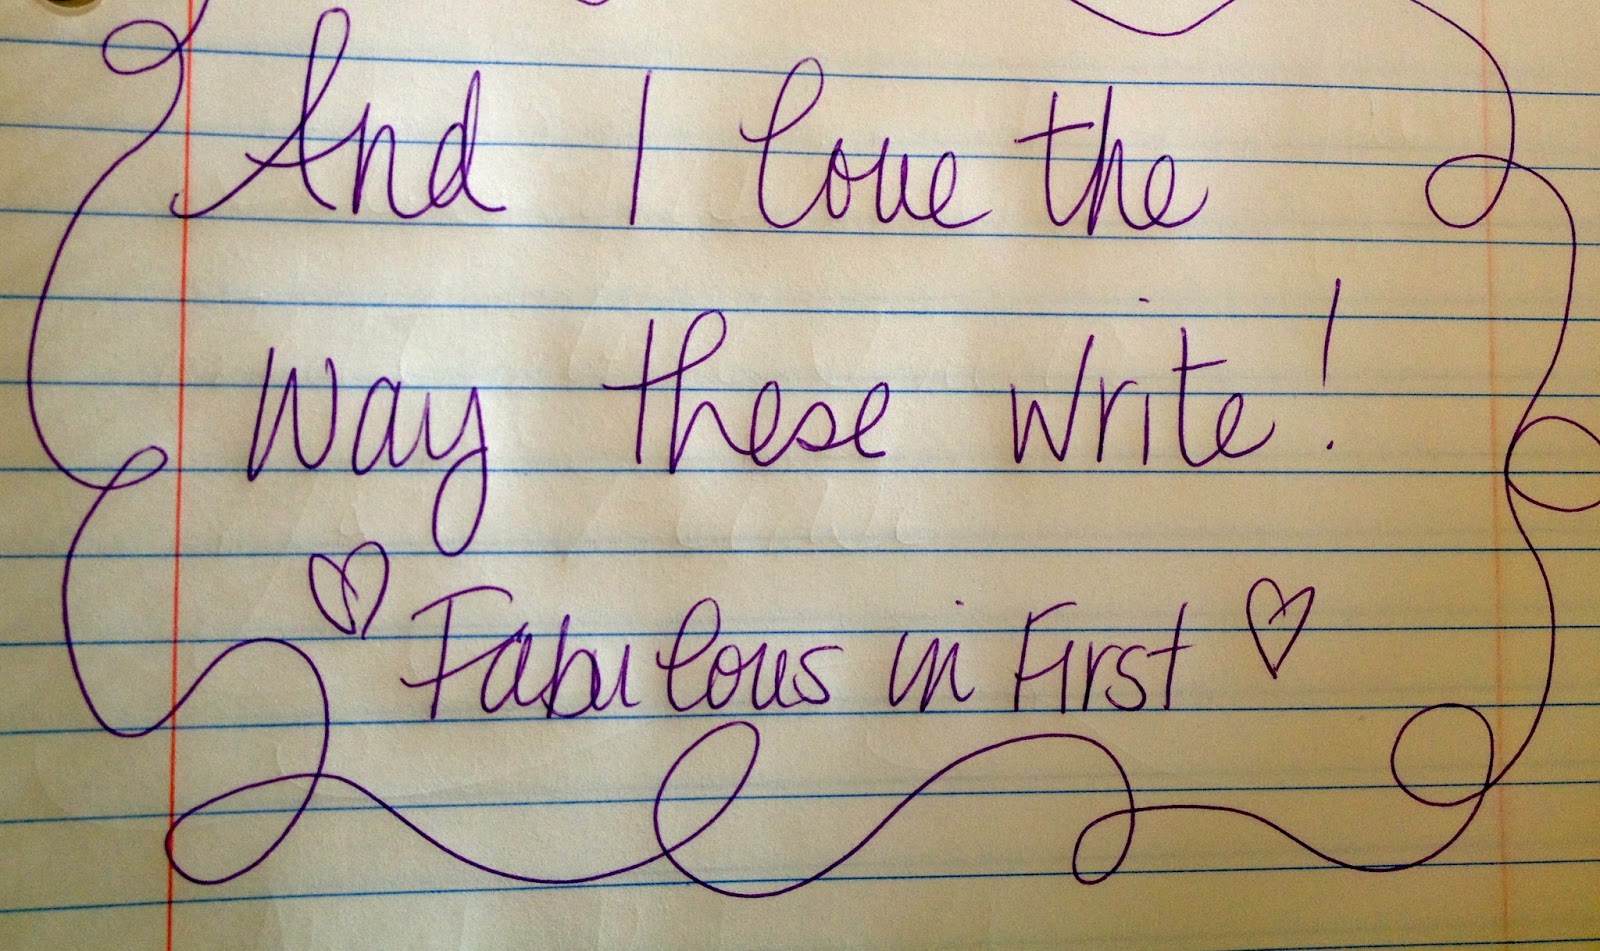 And I love the
way these write!
♡ Fabulous in First ♡